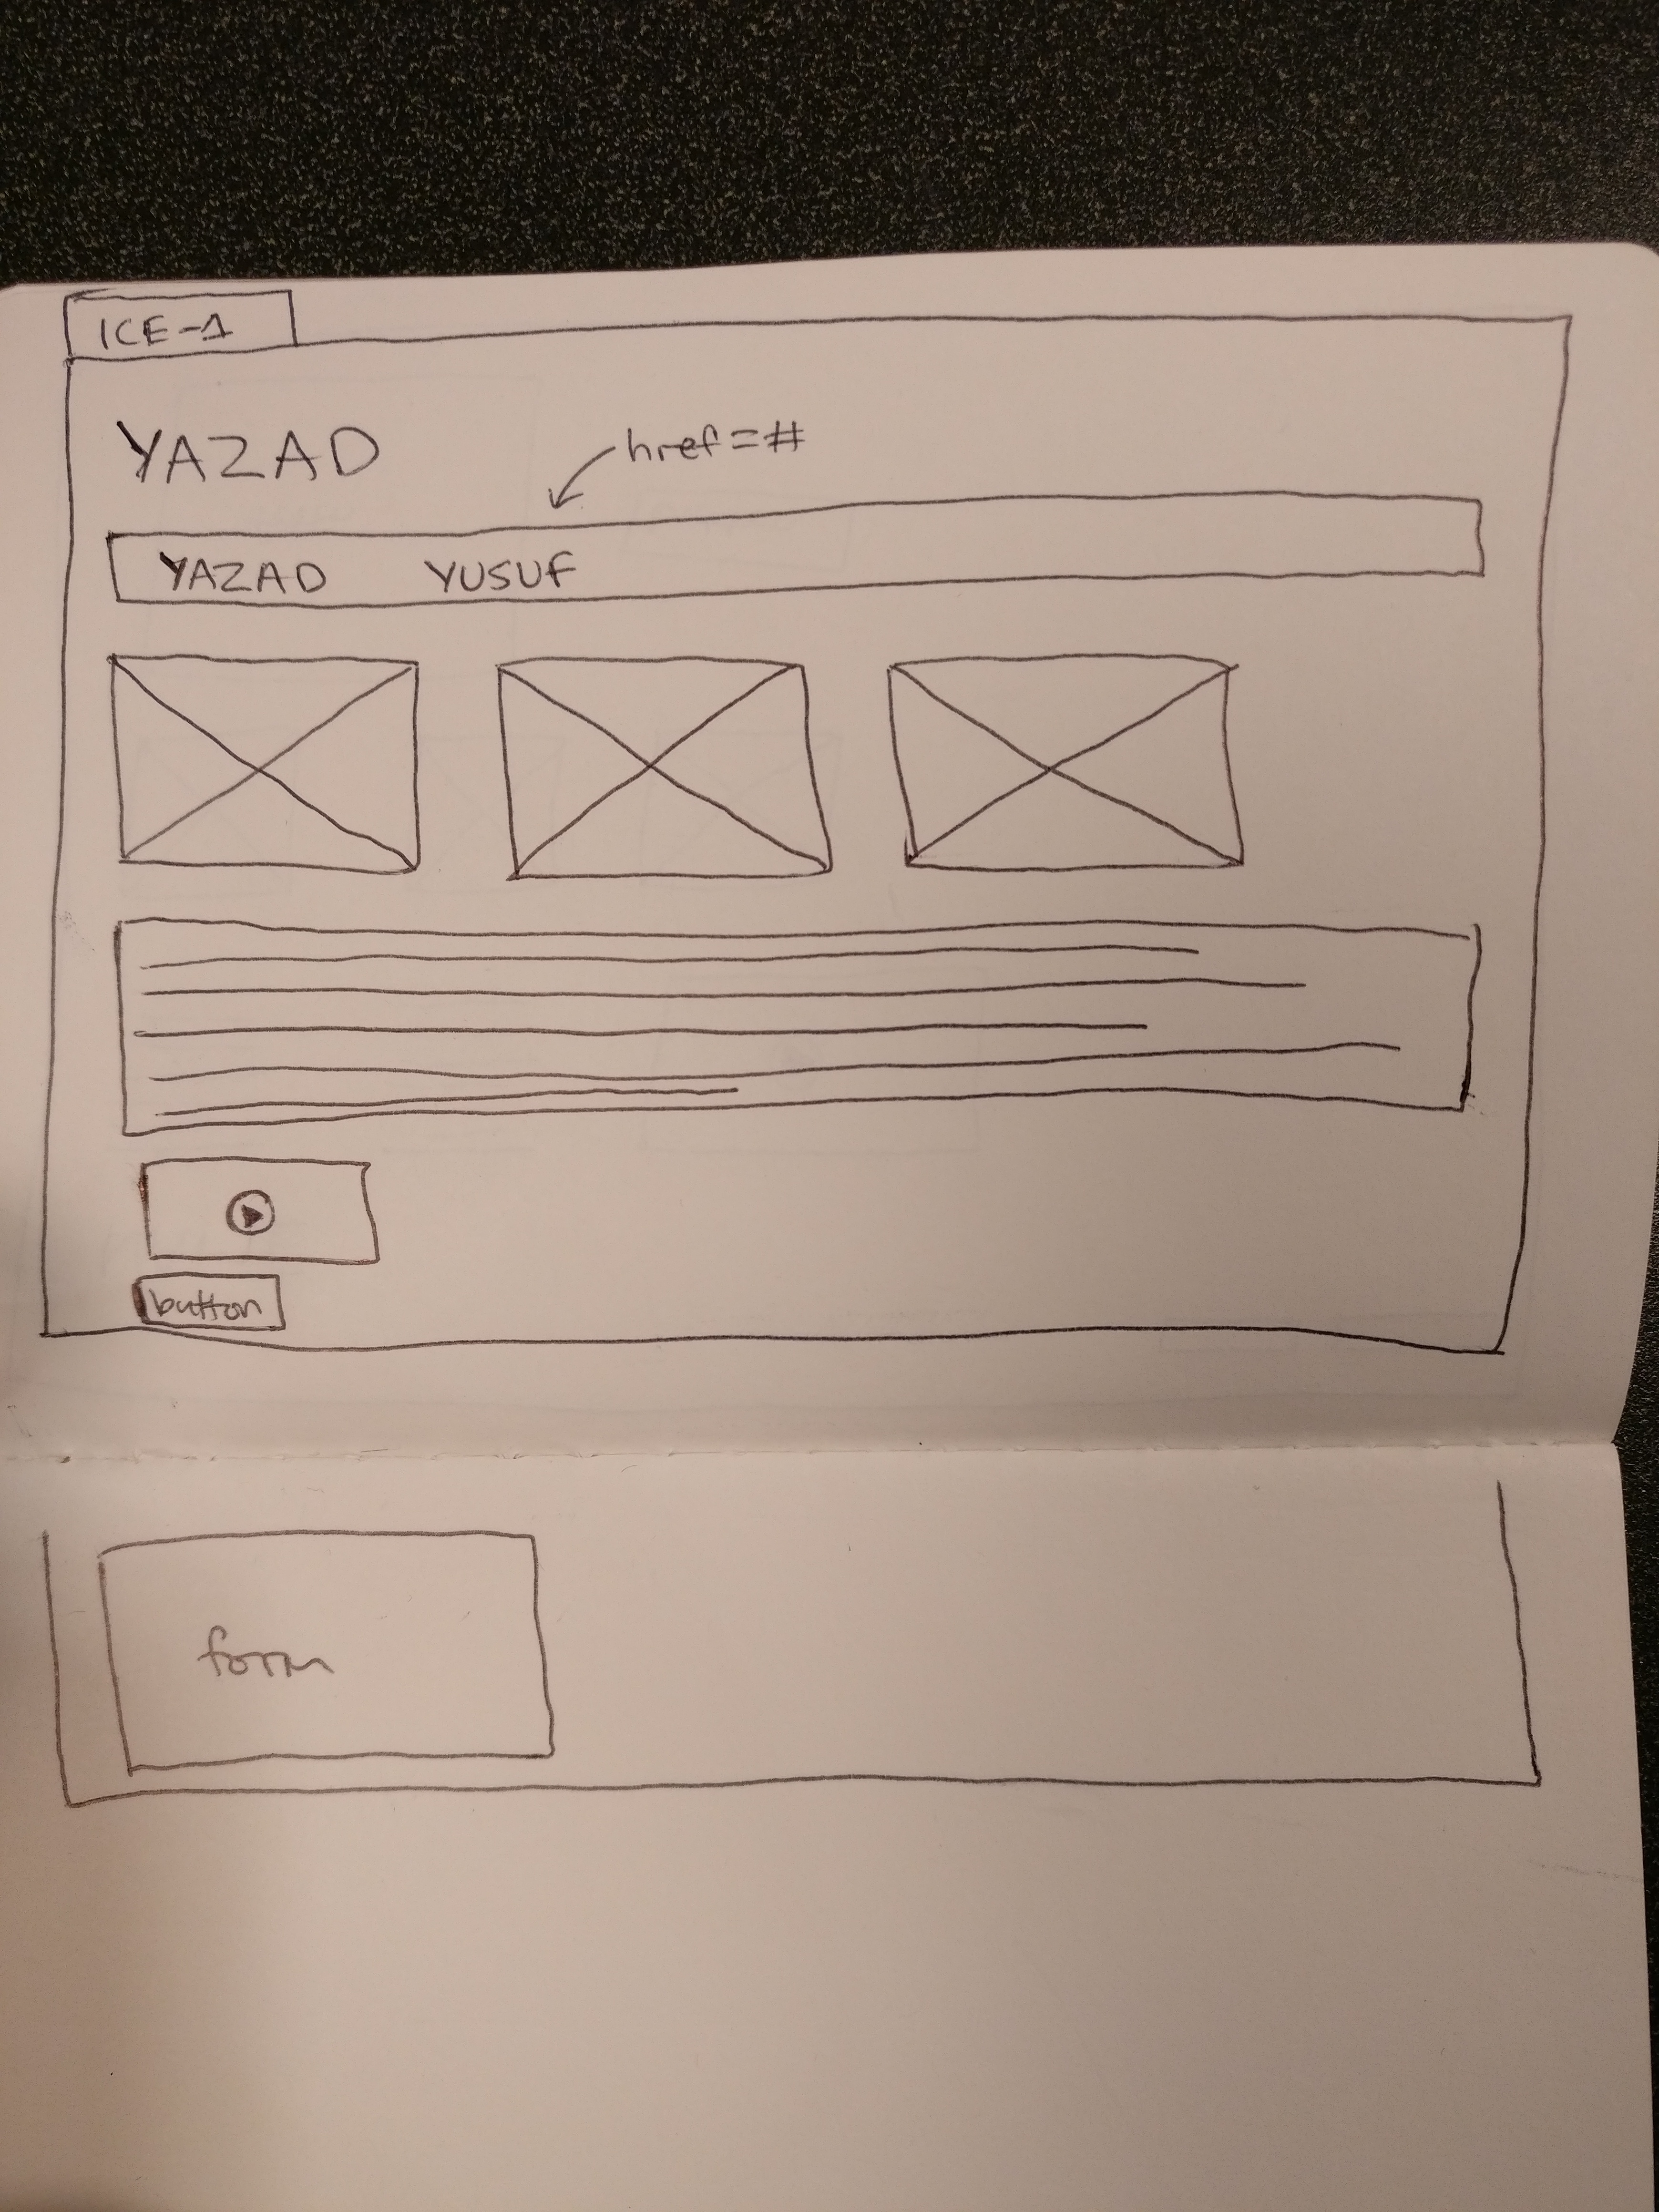 ICE-1
YAZAD
href=#
YAZAD YUSUF
button
form